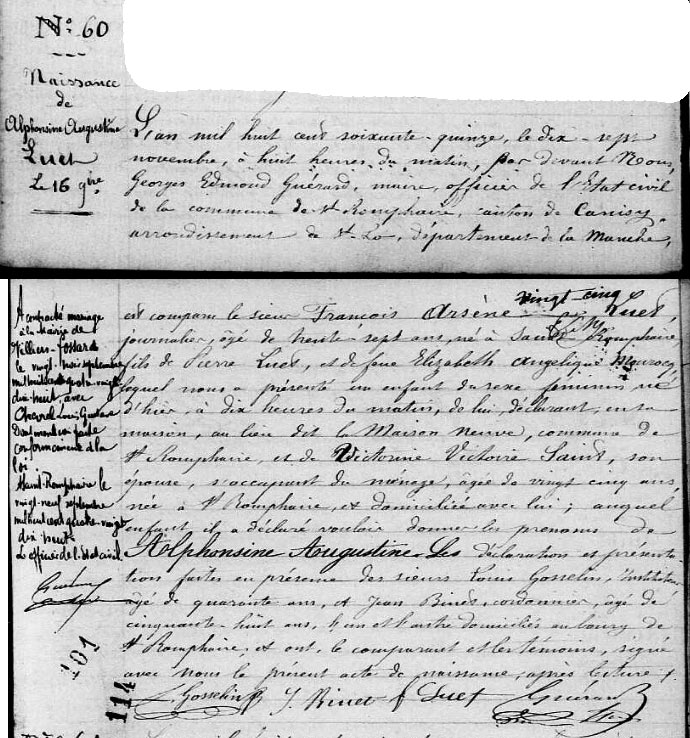 N° 60
Naissance
de
Alphonsine Augustine
Luet
Le 16 9bre
L'an mil huit cent soixante-quinze, le dix-sept
novembre, à huit heures du matin, par devant Nous,
Georges Edmond Guérard, maire, officier de l'Etat civil
de la commune de St Romphaire, canton de Canisy,
arrondissement de St-Lo, département de la Manche,
A contracté mariage
à la Mairie de
Villiers-Fossard
le vingt-trois septembre
mil huit cent quatre-vingt
dix-huit, avec
Louis Gustave
Dont mention faite
conformément à la
loi
Saint-Romphaire le
vingt-neuf septembre
mil huit cent quatre-vingt
dix huit
L'officier de l'état civil
est comparu le sieur François Arsène Luet
vingt-cinq
journalier, âgé de trente-sept ans, né à Saint Romphaire,
fils de Pierre Luet, et de feue Elizabeth Angelique
lequel nous a présenté un enfant du sexe féminin né
d'hier, à dix heures du matin, de lui, déclarant, en sa
maison, au lieu dit la Maison neuve, commune de
St Romphaire, et de Victorine Victoire Saint, son
épouse, s'occupant du ménage, âgée de vingt cinq ans,
née à St Romphaire, et domiciliée avec lui; auquel
enfant il a déclaré vouloir donner les prénoms de
Alphonsine Augustine. Les déclaration et présenta-
tion faites en présence des sieurs Louis Gosselin, Instituteur
âgé de quarante ans, et Jean Binet, cordonnier, âgé de
cinquante huit ans, l'un et l'autre domiciliés au bourg de
St Romphaire, et ont, le comparant et les témoins, signé
avec nous le présent acte de naissance, après lecture.
L Gosselin J. Binet Luet Guérard
101
114